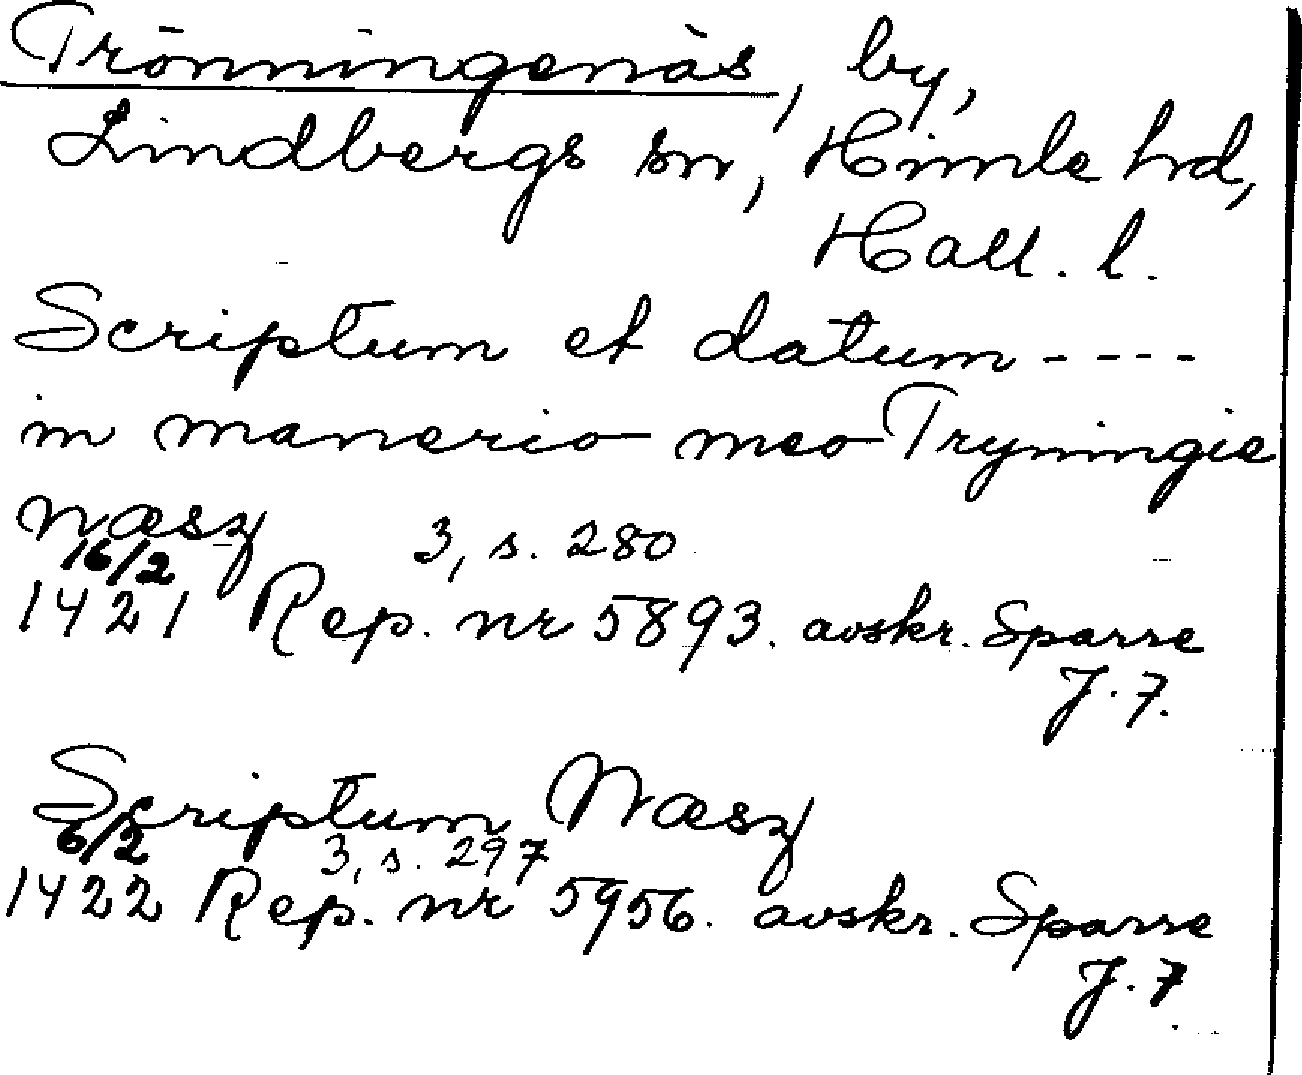 Trönningenäs, by,
Lindbergs sn, Himle hrd,
Hall. l.
Scriptum et datum ----
in manerio meo Tryningie
næsz 3, s. 280
16/2
1421 Rep. nr 5893. avskr. Sparre
J. 7.
Scriptum Næsz
6/2 3, s. 297
1422 Rep. nr 5956. avskr. Sparre
J. 7